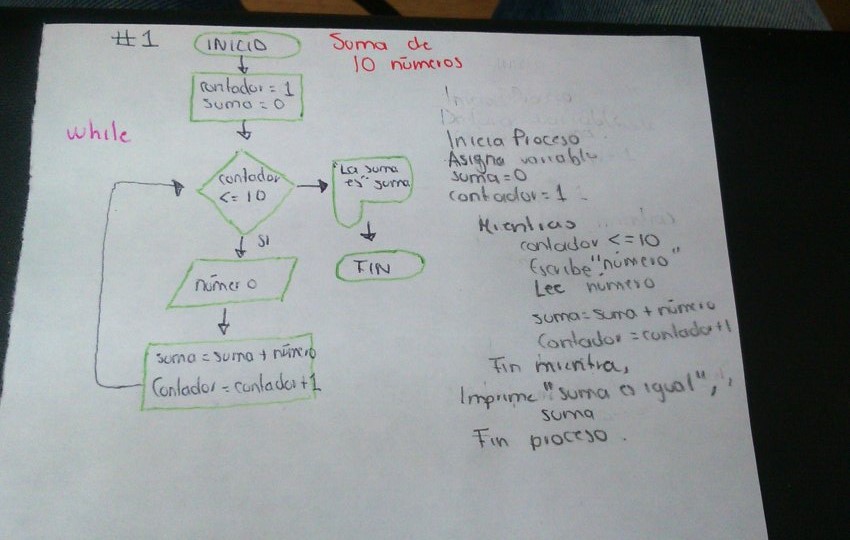 #1
INICIO
Suma de
10 números
contador = 1
suma = 0
while
contador
<= 10
"La suma
es" suma
SI
FIN
número
suma = suma + número
Contador = contador + 1
Inicia Proceso
Asigna variable
suma = 0
contador = 1
Mientras
contador <= 10
Escribe "número"
Lee numero
suma = suma + número
Contador = contador + 1
Fin mientra,
Imprime "suma es igual",
suma
Fin proceso.